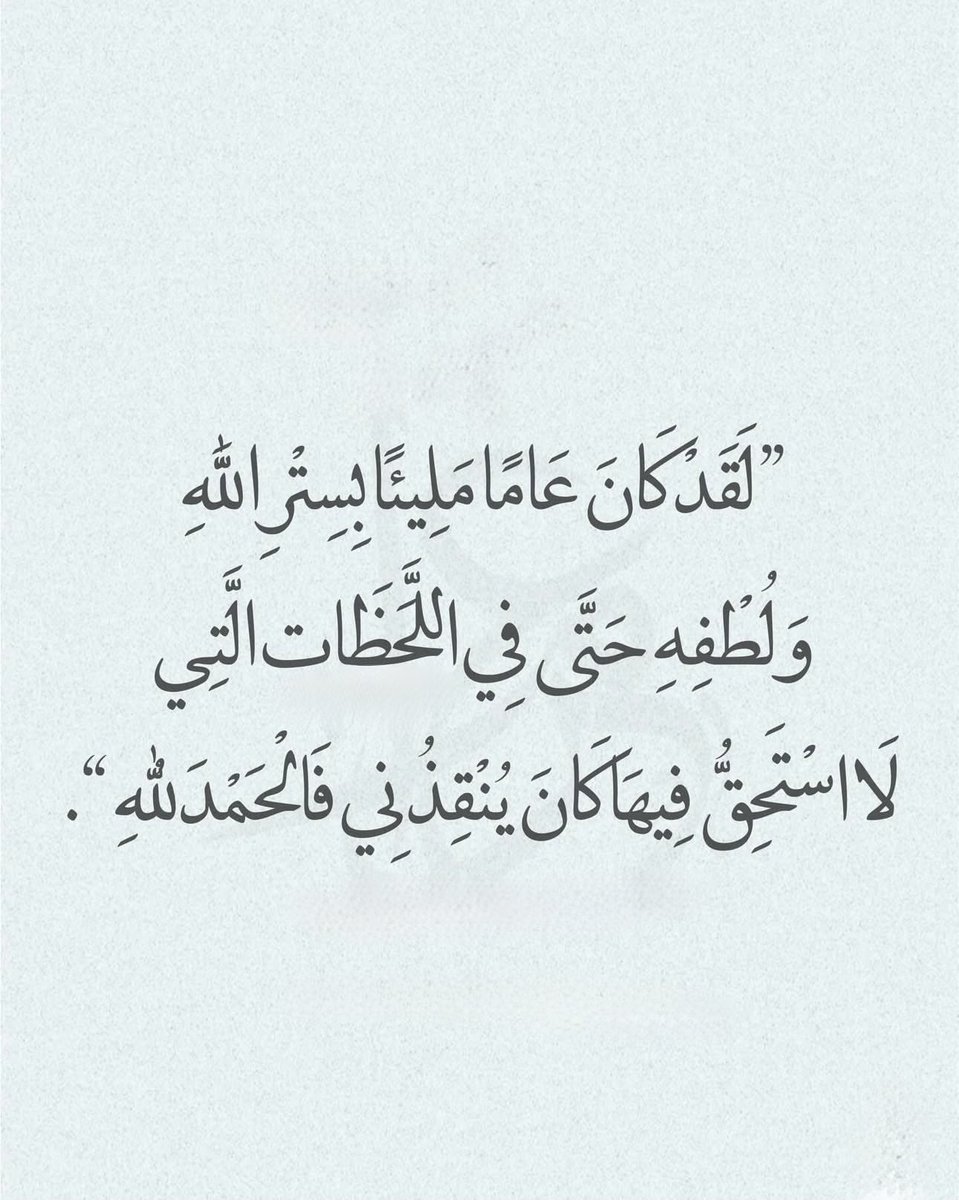 ”لَقَدْ كَانَ عَامًا مَلِيئًا بِسِتْرِ اللّٰهِ
وَلُطْفِهِ حَتَّى فِي اللَّحَظَات الَّتِي
لَا اسْتَحِقُّ فِيهَا كَانَ يُنْقِذُنِي فَالْحَمْدَ لِلّٰهِ “.